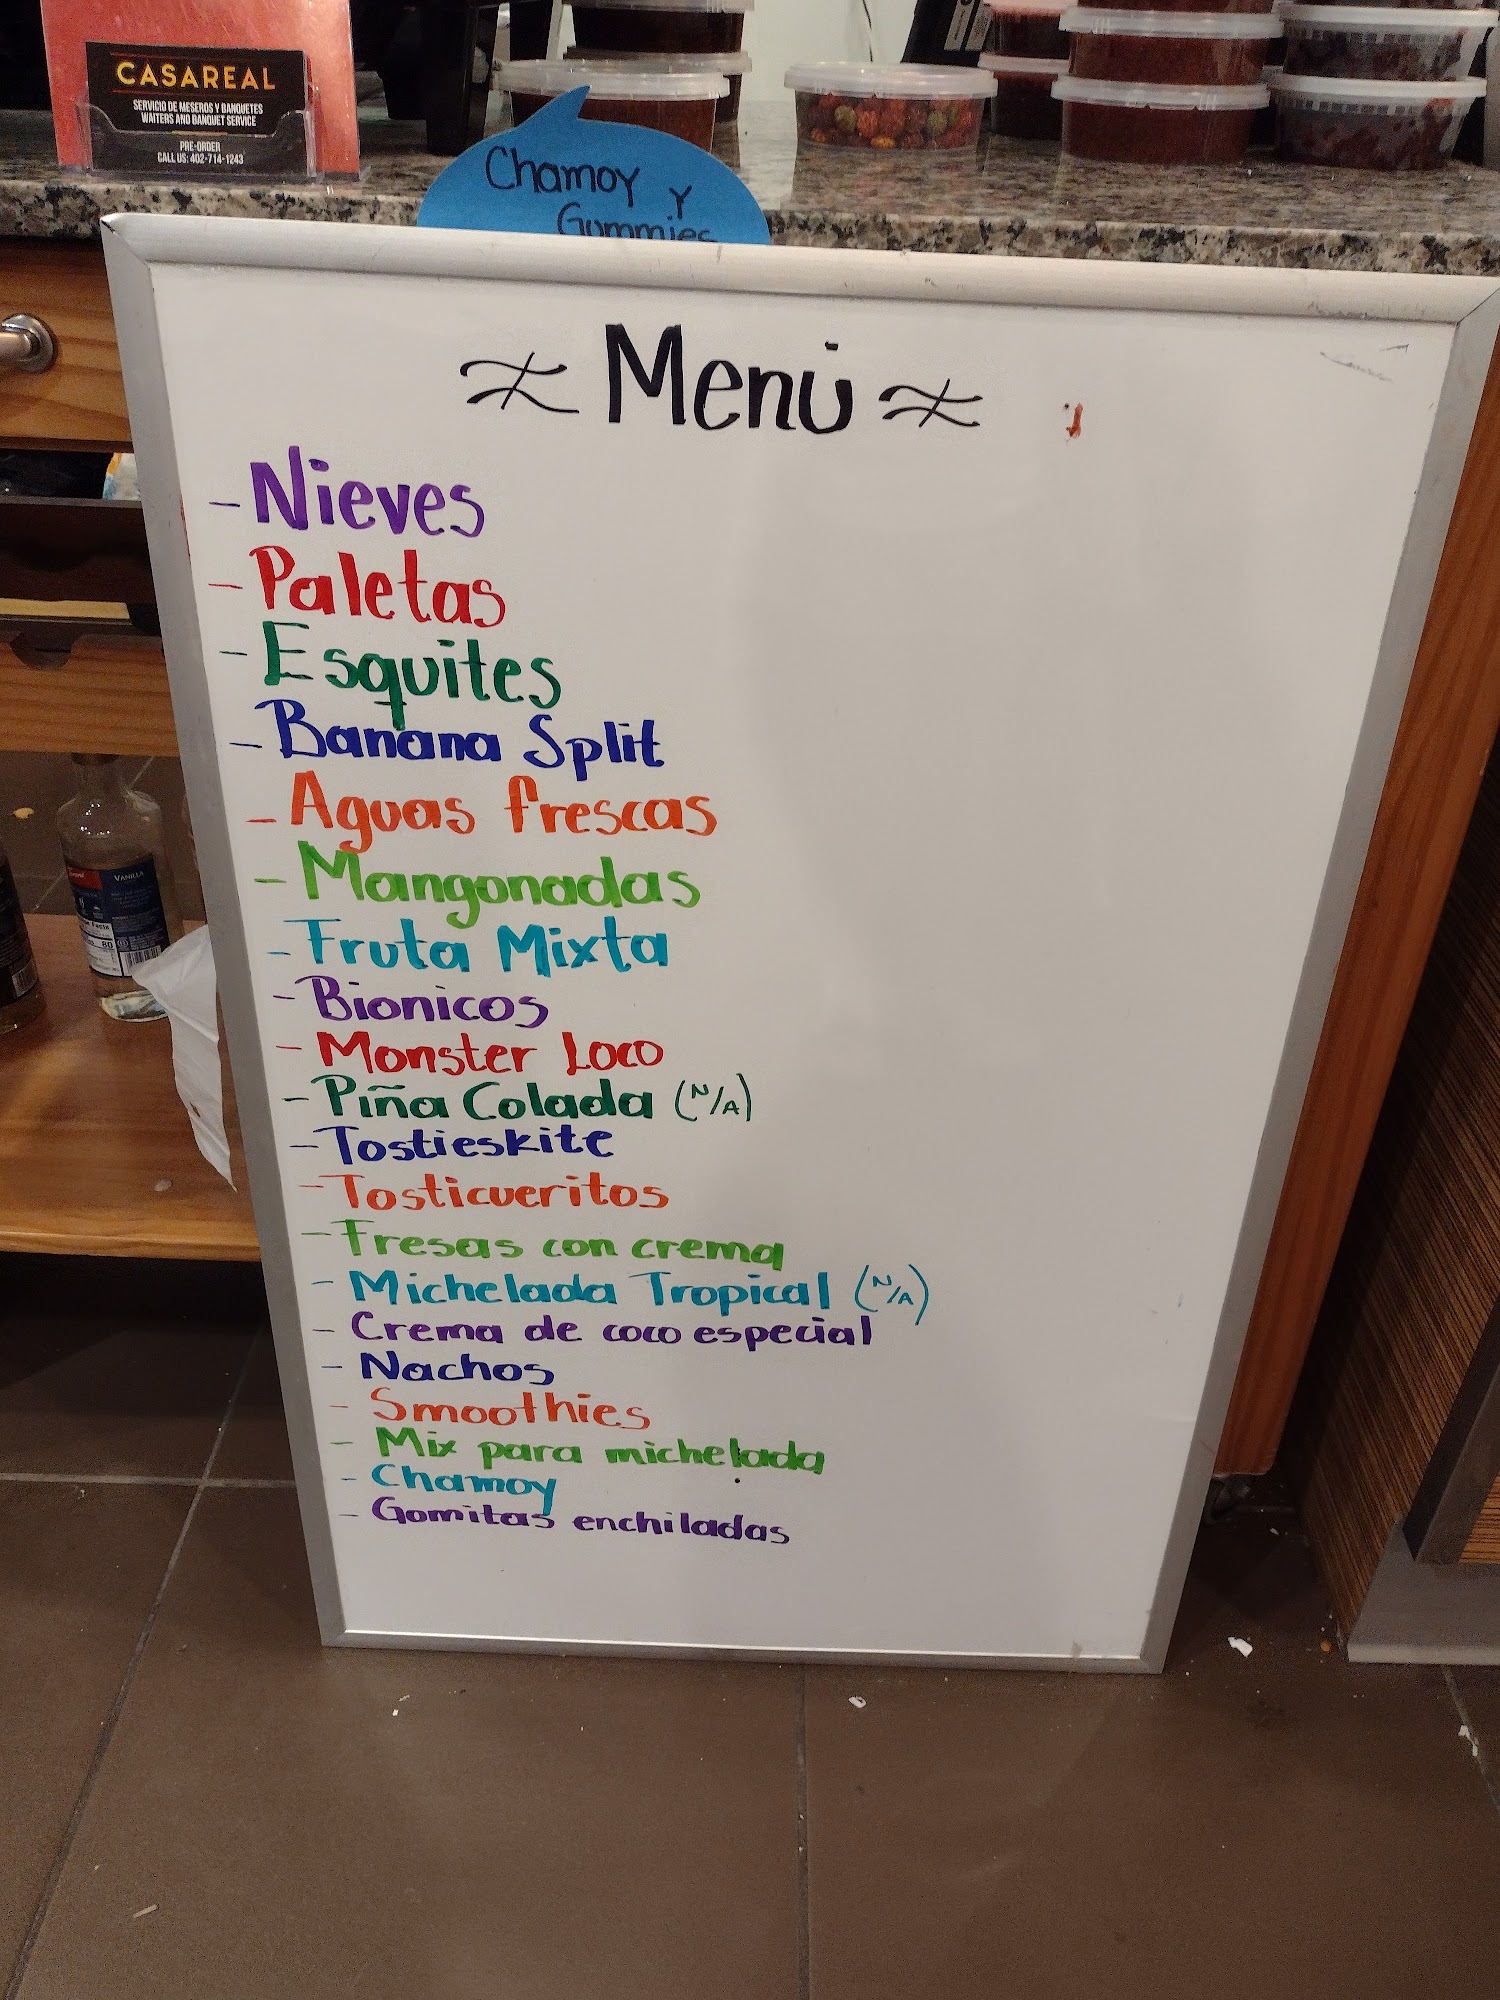 CASAREAL
SERVICIO DE MESEROS Y BANQUETES
WAITERS AND BANQUET SERVICE
PRE-ORDER
CALL US: 402-714-1243
Chamoy y
Gummies
Menú
- Nieves
- Paletas
- Esquites
- Banana Split
- Aguas frescas
- Mangonadas
- Fruta Mixta
- Bionicos
- Monster Loco
- Piña Colada (N/A)
- Tostieskite
- Tosticueritos
- Fresas con crema
- Michelada Tropical (N/A)
- Crema de coco especial
- Nachos
- Smoothies
- Mix para michelada
- Chamoy
- Gomitas enchiladas
VANILLA
80